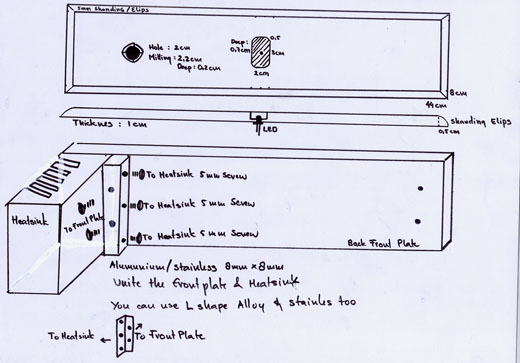 5mm Shanding/Elips
Hole : 2cm
Milling : 2.2cm
Deep : 0.2cm
Deep:
0.7cm
0.5
3cm
2cm
8cm
44cm
Thicknes : 1cm
LED
Shanding Elips
0.5cm
Heatsink
To Front Plate
To Heatsink 5mm Screw
To Heatsink 5mm Screw
To Heatsink 5mm Screw
Back Front Plate
Alumunium/stainless 8mm x 8mm
Unite the Front plate & Heatsink
You can use L shape Alloy & stainles too
To Heatsink
To Front Plate